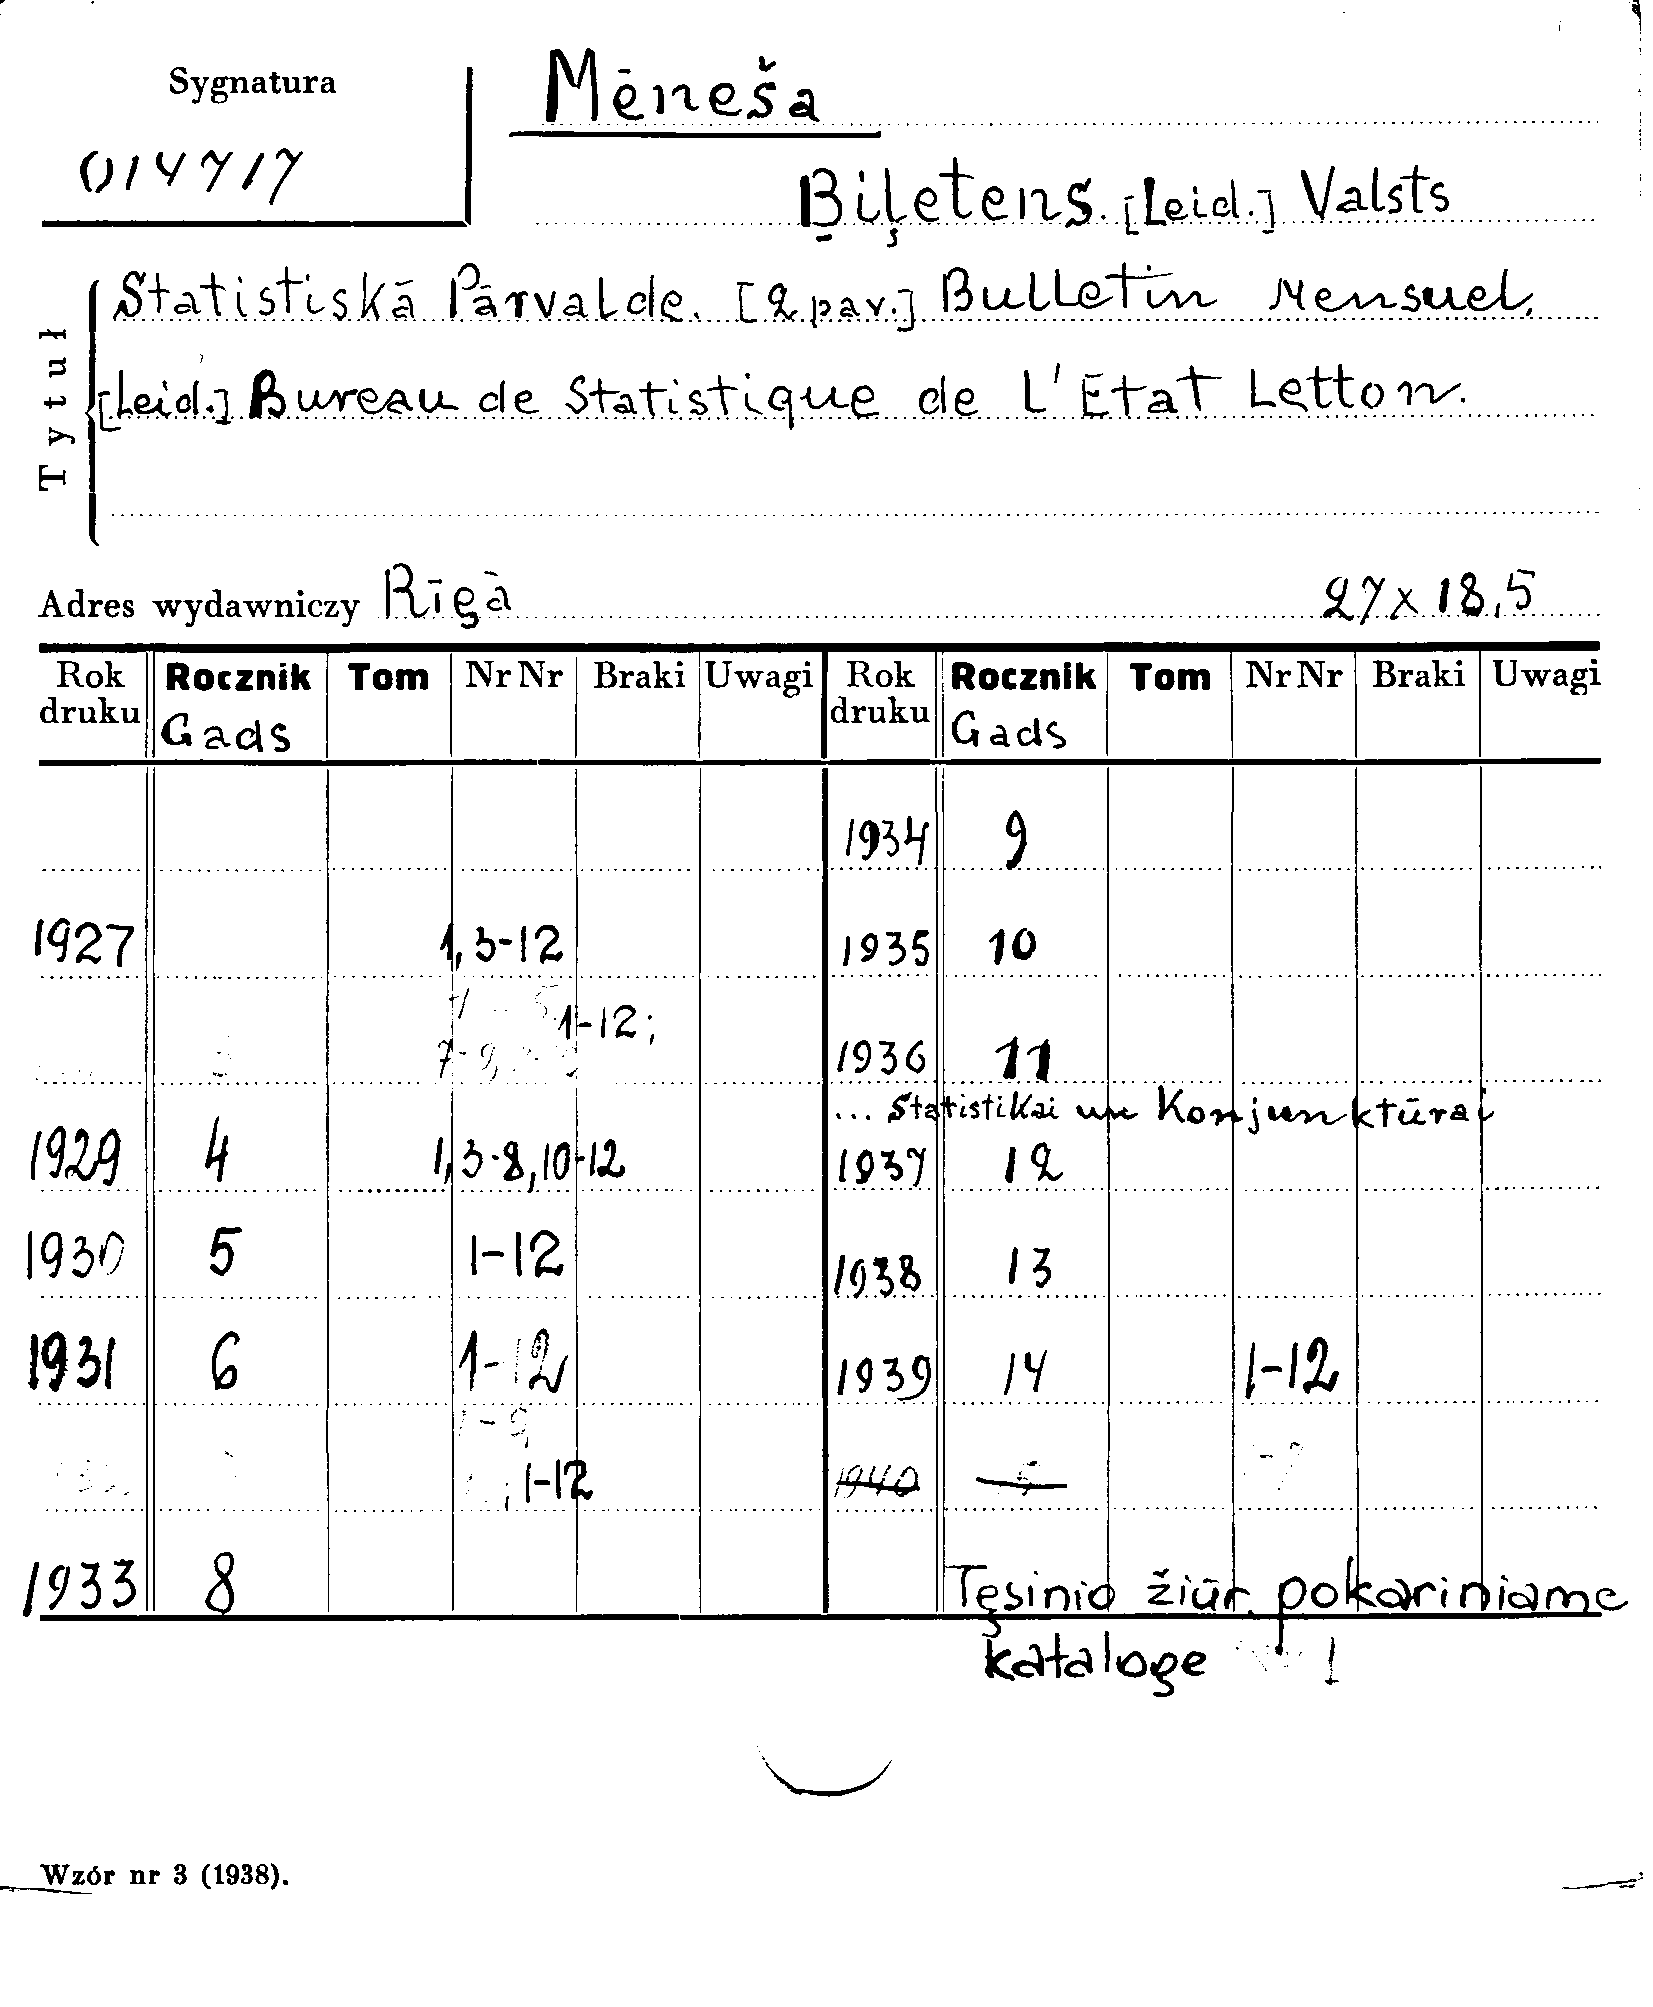 Sygnatura
014717
Mēneša
Biļetens. [Leid.] Valsts
Tytuł
Statistiskā Pārvalde. [2 pav.] Bulletin Mensuel.
[Leid.] Bureau de Statistique de L'Etat Letton.
Adres wydawniczy Rīgā 27 x 18,5
Rok druku Rocznik Tom Nr Nr Braki Uwagi Rok druku Rocznik Tom Nr Nr Braki Uwagi
Gads Gads
1934 9
1927 1, 3-12 1935 10
1-12;
1936 11
... Statistikai un Konjunktūrai
1929 4 1, 3-8, 10-12 1937 12
1930 5 1-12 1938 13
1931 6 1-12 1939 14 1-12
1-9,
1-12 1940
1933 8 Tęsinio žiūr. pokariniame
kataloge !
Wzór nr 3 (1938).